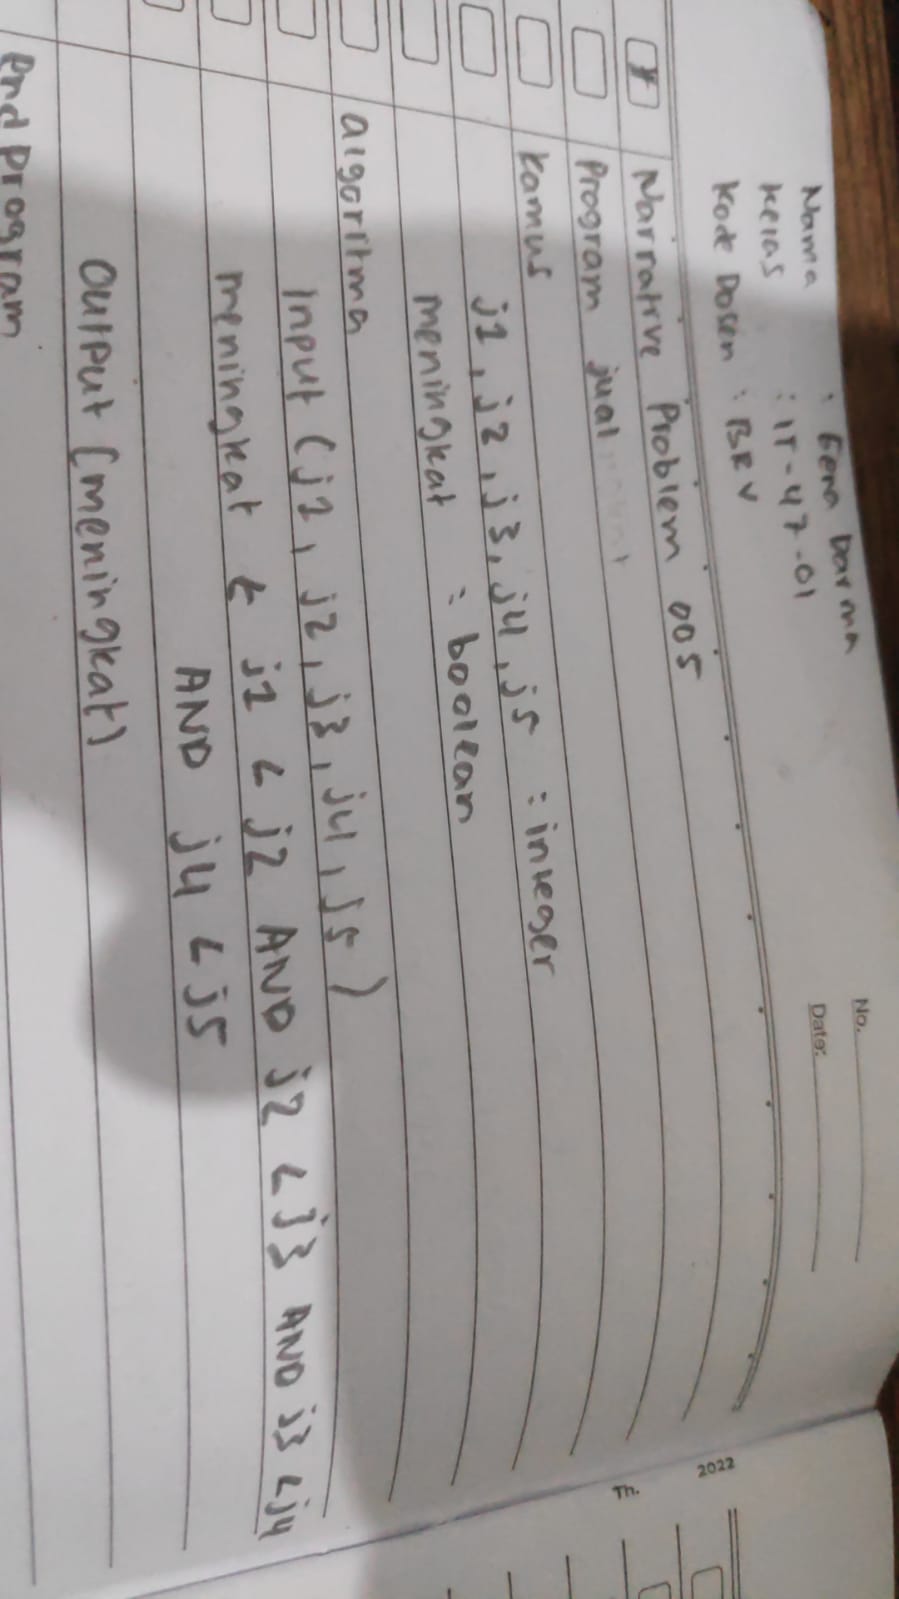 Nama : Gera Darma
Kelas : IT-47-01
Kode Dosen : BRV
No.
Date:
Narrative Problem 005
Program jual
Kamus
j1, j2, j3, j4, j5 : integer
meningkat : boolean
algoritma
Input (j1, j2, j3, j4, j5)
meningkat ← j1 < j2 AND j2 < j3 AND j3 < j4
AND j4 < j5
Output (meningkat)
end program
2022
Th.